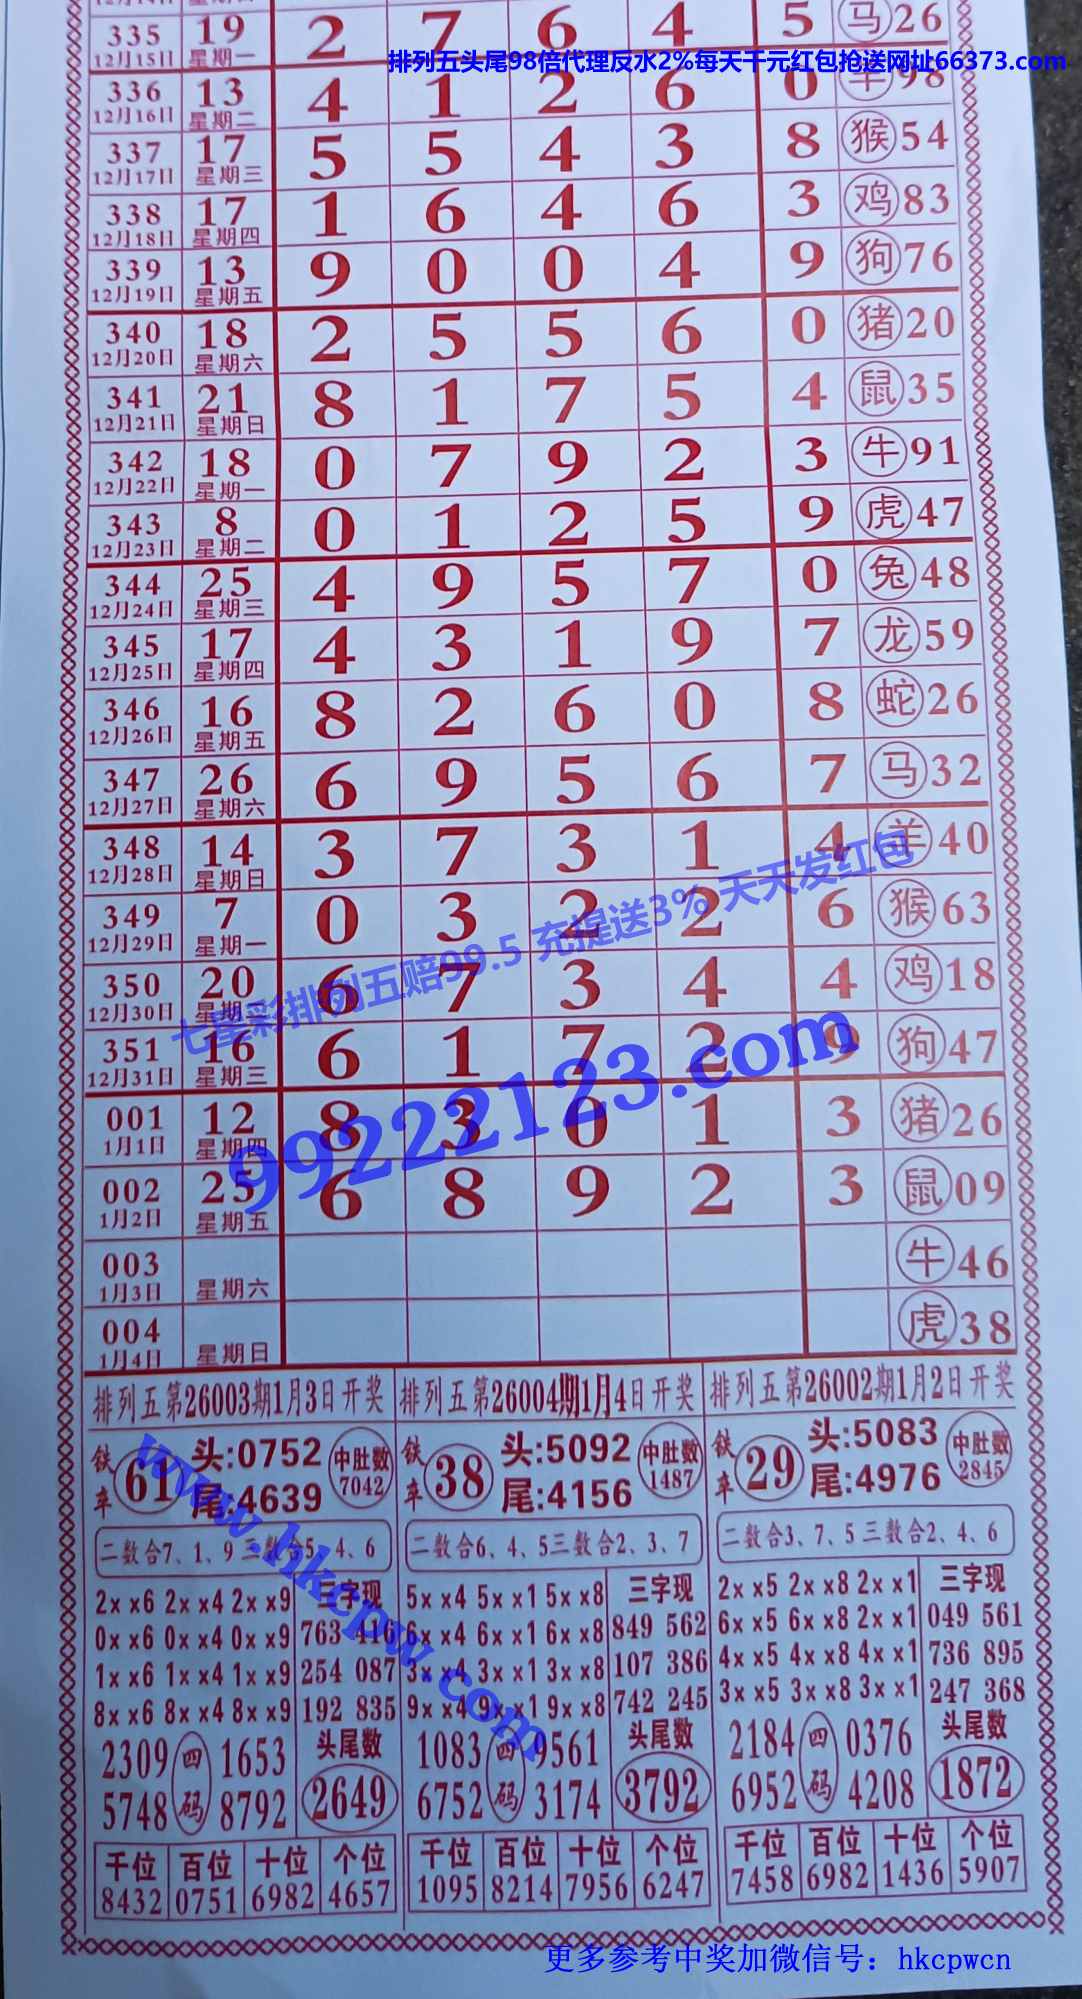 335 19 2 7 6 4 5 马26
12月15日 星期一
排列五头尾98倍代理反水2%每天千元红包抢送网址66373.com
336 13 4 1 2 6 0 羊98
12月16日 星期二
337 17 5 5 4 3 8 猴54
12月17日 星期三
338 17 1 6 4 6 3 鸡83
12月18日 星期四
339 13 9 0 0 4 9 狗76
12月19日 星期五
340 18 2 5 5 6 0 猪20
12月20日 星期六
341 21 8 1 7 5 4 鼠35
12月21日 星期日
342 18 0 7 9 2 3 牛91
12月22日 星期一
343 8 0 1 2 5 9 虎47
12月23日 星期二
344 25 4 9 5 7 0 兔48
12月24日 星期三
345 17 4 3 1 9 7 龙59
12月25日 星期四
346 16 8 2 6 0 8 蛇26
12月26日 星期五
347 26 6 9 5 6 7 马32
12月27日 星期六
348 14 3 7 3 1 4 羊40
12月28日 星期日
349 7 0 3 2 2 6 猴63
12月29日 星期一
七星彩排列五赔99.5 充提送3% 天天发红包
350 20 6 7 3 4 4 鸡18
12月30日 星期二
351 16 6 1 7 2 9 狗47
12月31日 星期三
99222123.com
001 12 8 3 0 1 3 猪26
1月1日 星期四
002 25 6 8 9 2 3 鼠09
1月2日 星期五
003 牛46
1月3日 星期六
004 虎38
1月4日 星期日
排列五第26003期1月3日开奖
铁车 61 头:0752 尾:4639 中肚数 7042
二数合7、1、9 三数合5、4、6
2xx6 2xx4 2xx9 三字现
0xx6 0xx4 0xx9 763 416
1xx6 1xx4 1xx9 254 087
8xx6 8xx4 8xx9 192 835
2309 四码 1653 头尾数
5748 8792 2649
千位 百位 十位 个位
8432 0751 6982 4657
排列五第26004期1月4日开奖
铁车 38 头:5092 尾:4156 中肚数 1487
二数合6、4、5三数合2、3、7
5xx4 5xx1 5xx8 三字现
6xx4 6xx1 6xx8 849 562
3xx4 3xx1 3xx8 107 386
9xx4 9xx1 9xx8 742 245
1083 四码 9561 头尾数
6752 3174 3792
千位 百位 十位 个位
1095 8214 7956 6247
排列五第26002期1月2日开奖
铁车 29 头:5083 尾:4976 中肚数 2845
二数合3、7、5 三数合2、4、6
2xx5 2xx8 2xx1 三字现
6xx5 6xx8 2xx1 049 561
4xx5 4xx8 4xx1 736 895
3xx5 3xx8 3xx1 247 368
2184 四码 0376 头尾数
6952 4208 1872
千位 百位 十位 个位
7458 6982 1436 5907
www.hkcpw.com
更多参考中奖加微信号：hkcpwcn